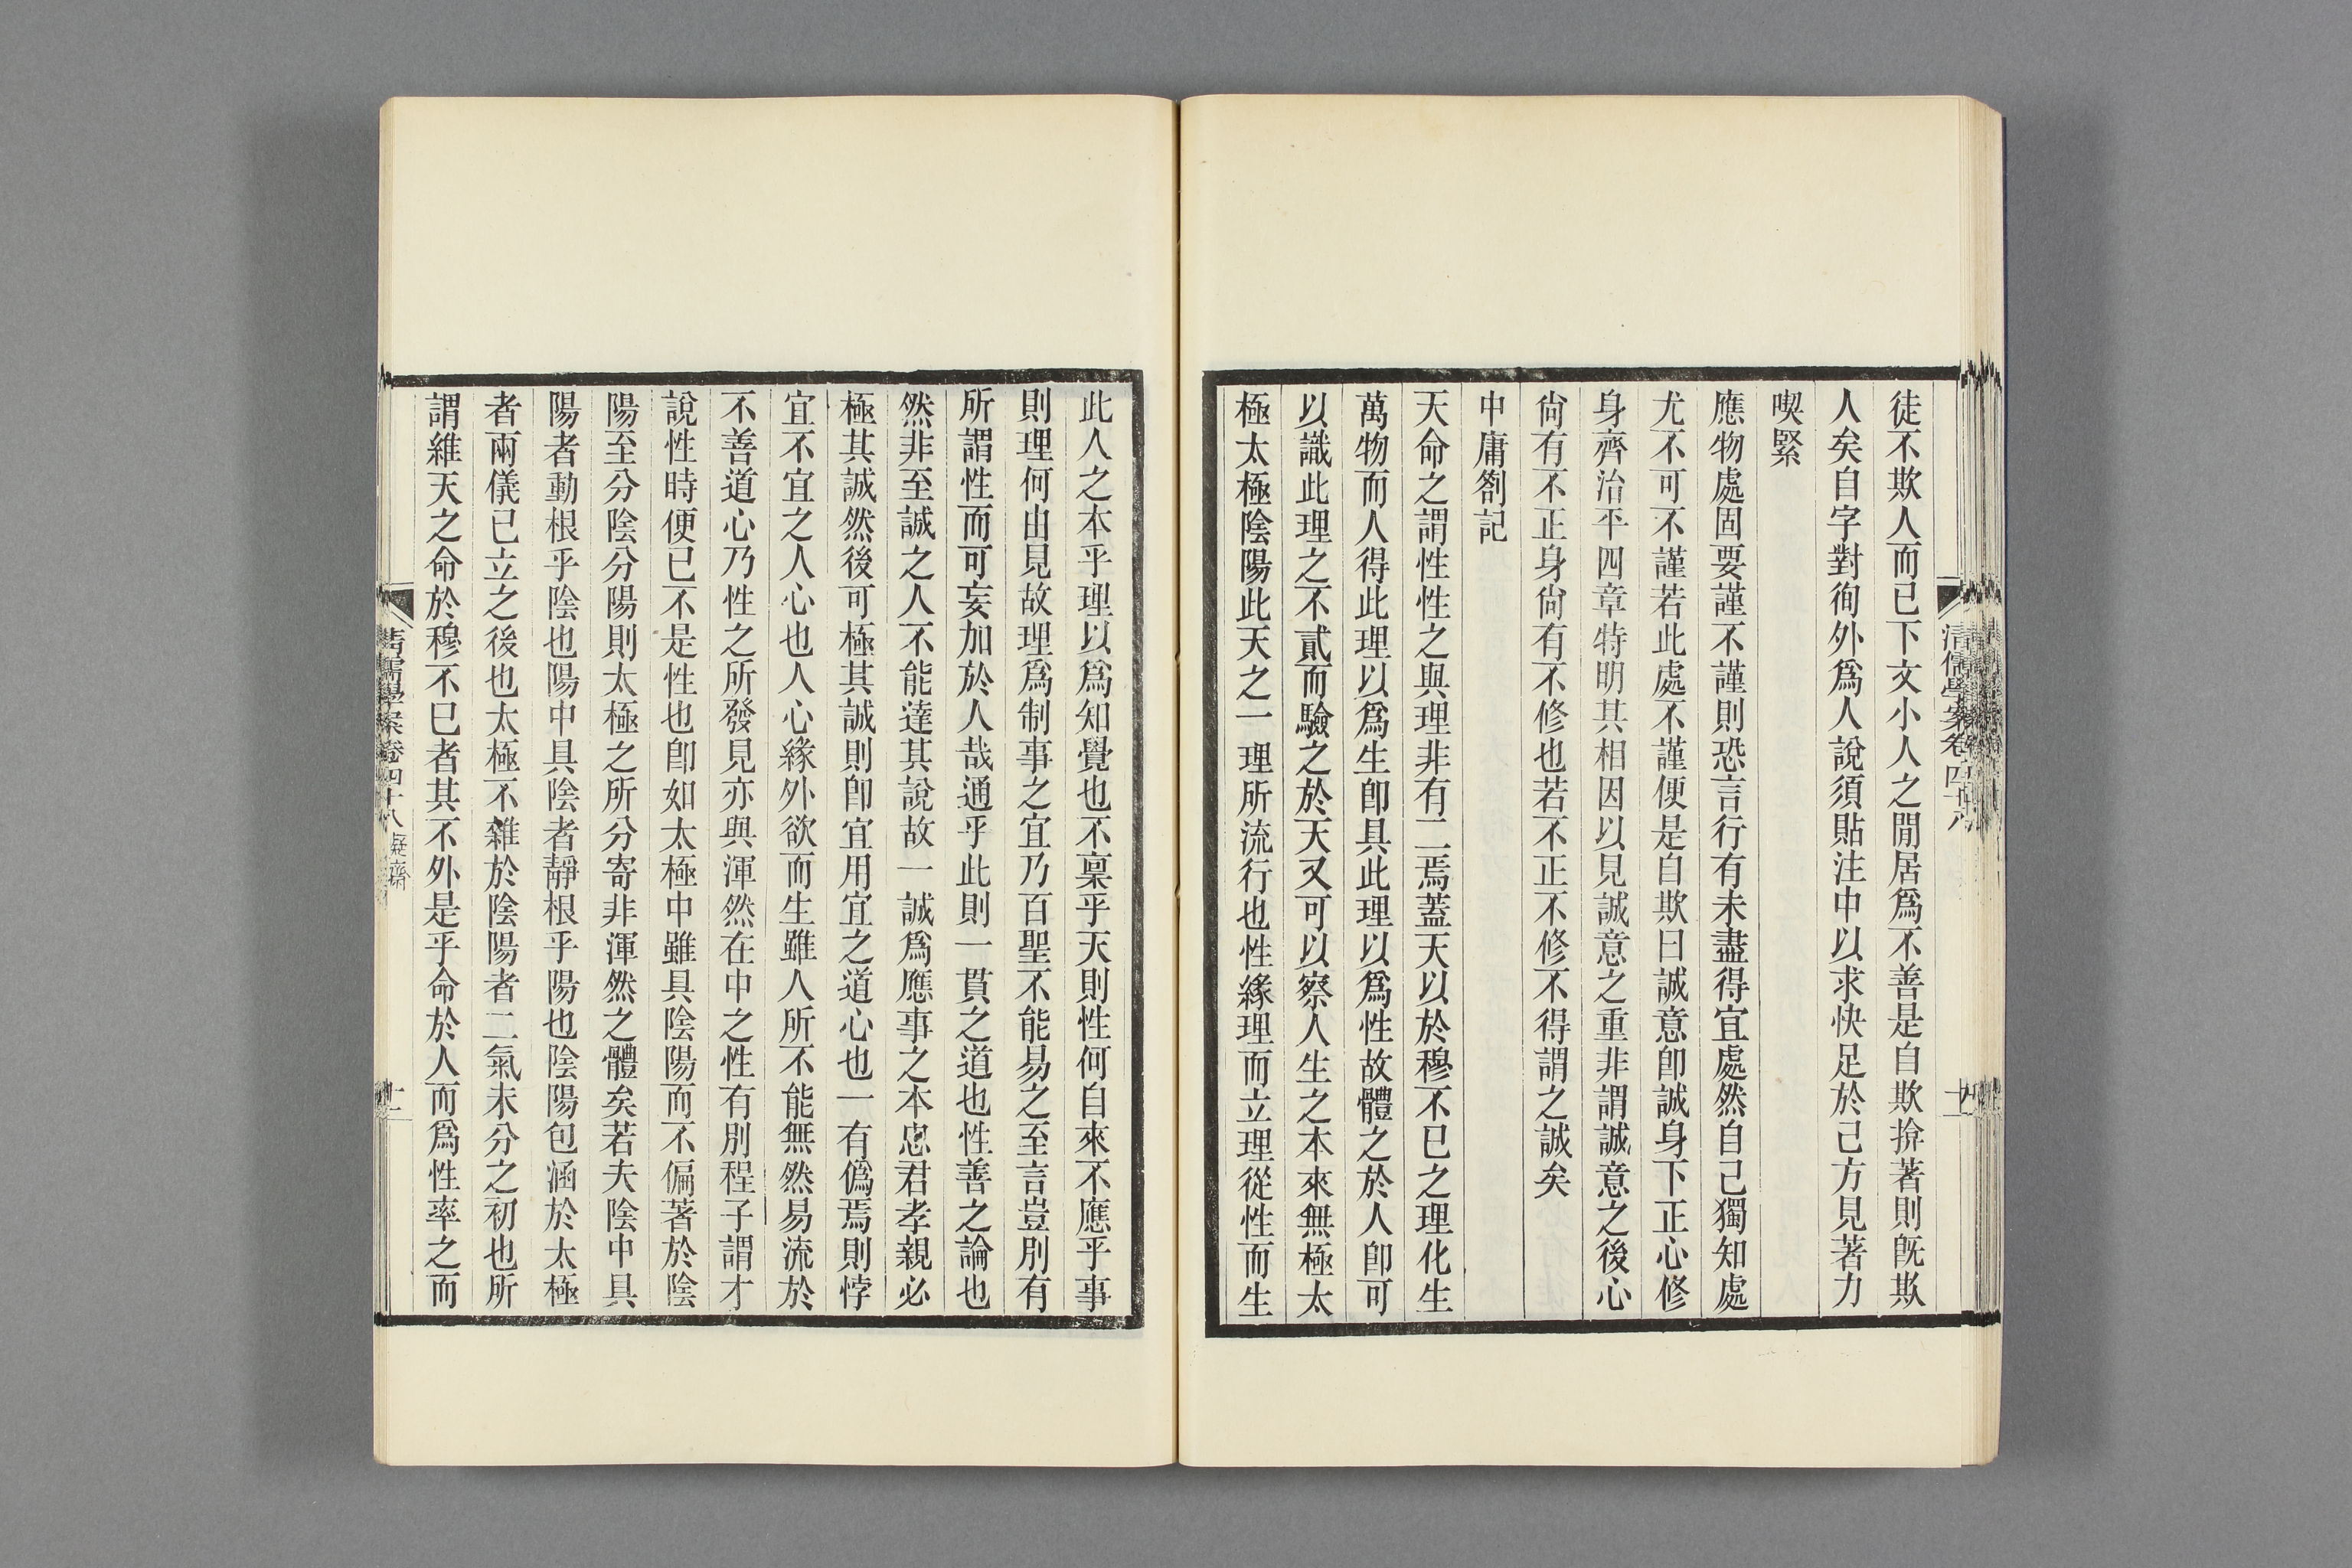 徒不欺人而已下文小人之閒居爲不善是自欺揜著則旣欺
人矣自字對徇外爲人說須貼注中以求快足於己方見著力
喫緊
應物處固要謹不謹則恐言行有未盡得宜處然自己獨知處
尤不可不謹若此處不謹便是自欺曰誠意卽誠身下正心修
身齊治平四章特明其相因以見誠意之重非謂誠意之後心
尙有不正身尙有不修也若不正不修不得謂之誠矣
中庸劄記
天命之謂性性之與理非有二焉蓋天以於穆不已之理化生
萬物而人得此理以爲生卽具此理以爲性故體之於人卽可
以識此理之不貳而驗之於天又可以察人生之本來無極太
極太極陰陽此天之一理所流行也性緣理而立理從性而生
此人之本乎理以爲知覺也不稟乎天則性何自來不應乎事
則理何由見故理爲制事之宜乃百聖不能易之至言豈別有
所謂性而可妄加於人哉通乎此則一貫之道也性善之論也
然非至誠之人不能達其說故一誠爲應事之本忠君孝親必
極其誠然後可極其誠則卽宜用宜之道心也一有僞焉則悖
宜不宜之人心也人心緣外欲而生雖人所不能無然易流於
不善道心乃性之所發見亦與渾然在中之性有別程子謂才
說性時便已不是性也卽如太極中雖具陰陽而不偏著於陰
陽至分陰分陽則太極之所分寄非渾然之體矣若夫陰中具
陽者動根乎陰也陽中具陰者靜根乎陽也陰陽包涵於太極
者兩儀已立之後也太極不雜於陰陽者二氣未分之初也所
謂維天之命於穆不已者其不外是乎命於人而爲性率之而
清儒學案卷四十八 凝齋
十一